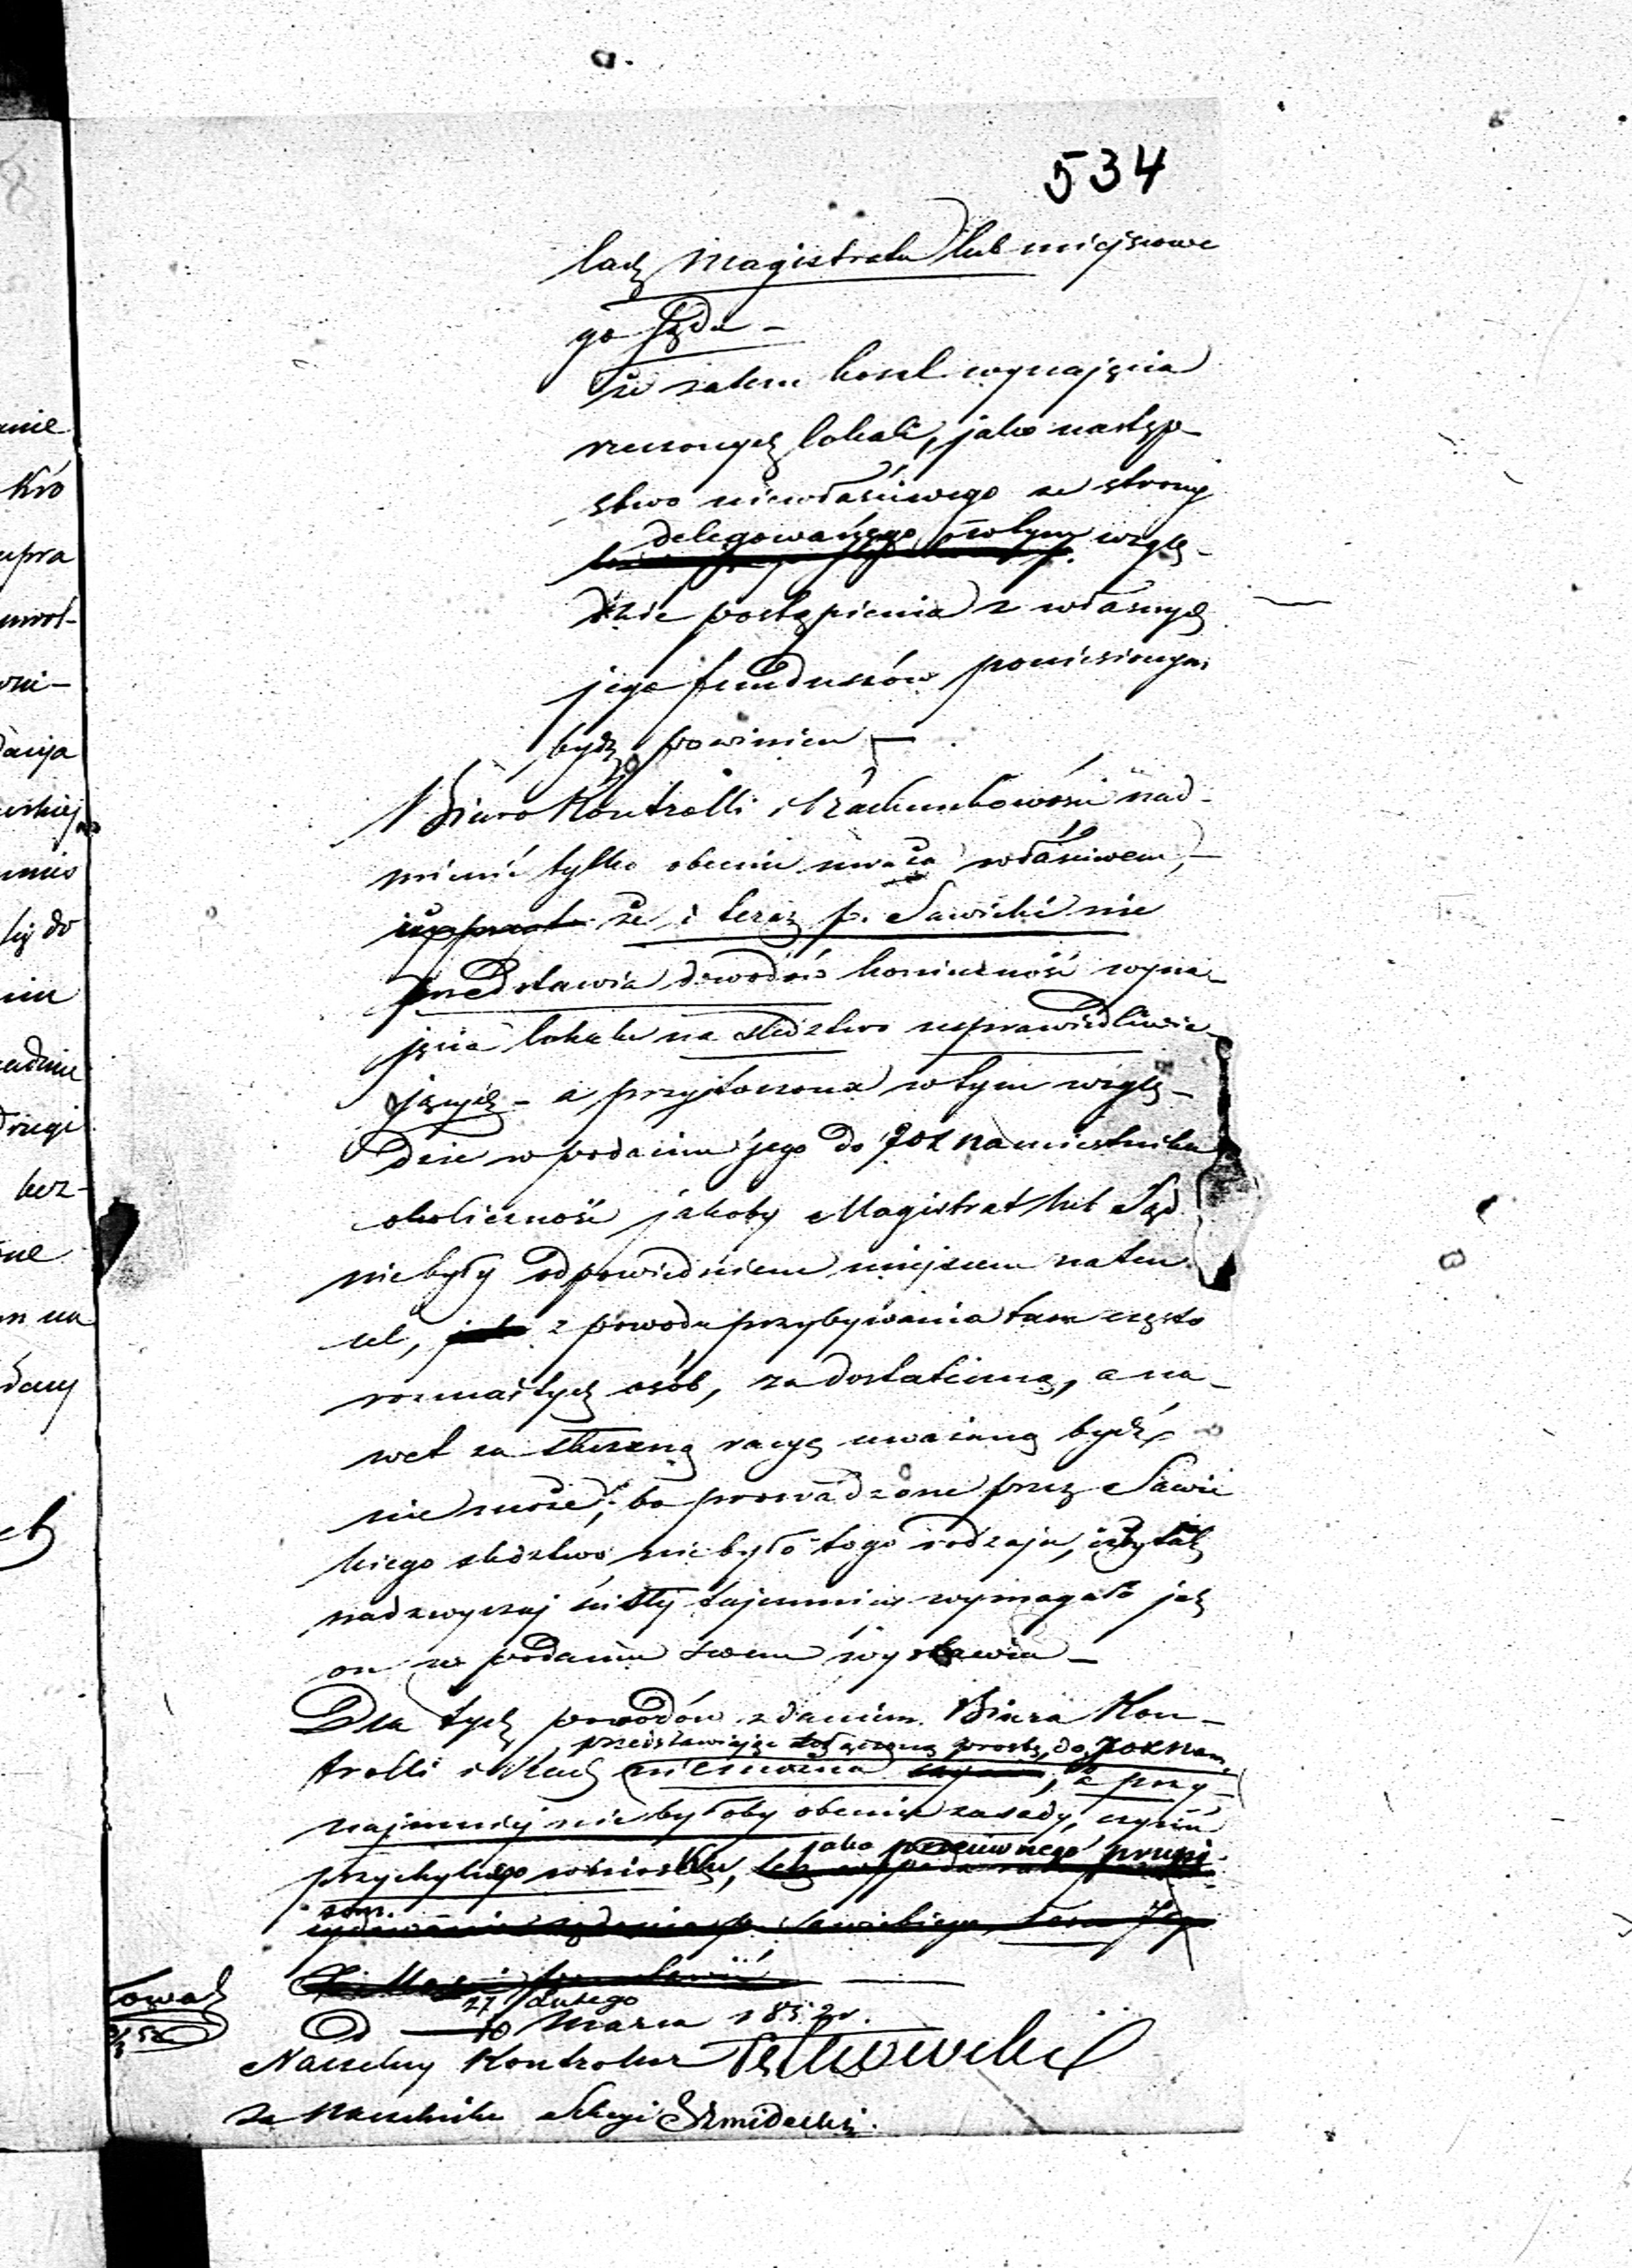 534
lach Magistratu lub miejscowe
go Sądu –
że zatem koszt wynajęcia
rzeczonych lokali, jako następ-
stwo niewłaściwego ze strony
delegowanego w tym wzglę-
dzie postąpienia z własnych
jego funduszów poniesionym
bydź powinien –
Biuro Kontrolli i Rachunkowości nad-
mienić tylko obecnie uważa właściwem, –
że i teraz p. Sawicki nie
przedstawia dowodów konieczność wyna-
jęcia lokalu na śledztwo usprawiedliwia-
jących – a przytoczona w tym wzglę-
dzie w podaniu jego do JOX Namiestnika
okoliczność jakoby Magistrat lub Sąd
niebyły odpowiedniem miejscem na ten
cel, z powodu przybywania tam często
rozmaitych osób, za dostateczną, a na-
wet za słuszną racyę uważaną bydź
nie może; bo prowadzone przez Sawic
kiego śledztwo niebyło tego rodzaju, iżby tak
nadzwyczaj ścisłej tajemnicy wymagało jak
on w podaniu swem wystawia –
Dla tych powodów zdaniem Biura Kon-
przedstawiając dołączoną prośbę do JOX Nam.
trolli i Rach niemożna , a przy-
najmniej nie byłoby obecnie zasady, czynić
przychylnego wniosku, jako przeciwnego przepi-
som.
27 Lutego
D 10 Marca 1852 r.
Naczelny Kontroler
za Naczelnika Sekcyi Szmidecki.